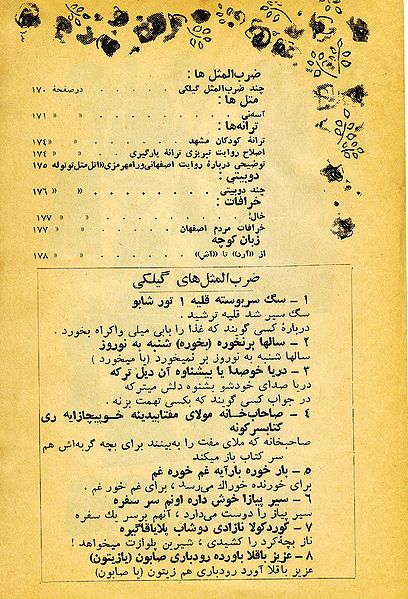 ضرب‌المثل ها :
چند ضرب‌المثل گیلکی . . . . . . درصفحهٔ ۱۷۰
مثل ها :
آسه‌نی . . . . . . . » » ۱۷۱
ترانه‌ها :
ترانهٔ کودکان مشهد . . . . . » » ۱۷۴
اصلاح روایت تبریزی ترانهٔ بارگیری . . » » ۱۷۴
توضیحی دربارهٔ روایت اصفهانی‌ورامهرمزی«اتل‌متل‌توتوله ۱۷۵
دوبیتی :
چند دوبیتی . . . . . . . » » ۱۷۶
خرافات :
خال! . . . . . . . . » » ۱۷۷
خرافات مردم اصفهان . . . . . » » ۱۷۷
زبان کوچه
از «آرد» تا «آش» . . . . . . » » ۱۷۸
ضرب‌المثل‌های گیلکی
۱ – سگ سربوسته قلیه ۱ تور شابو
سگ سیر شد قلیه ترشید .
دربارهٔ کسی گویند که غذا را بابی میلی واکراه بخورد .
۲ – سالها برنخوره (بخوره) شنبه به نوروز
سالها شنبه به نوروز بر نمیخورد (یا میخورد )
۳ – دریا خوصدا یا بیشناوه آن دیل ترکه
دریا صدای خودشو بشنوه دلش میترکه
در جواب کسی گویند که بکسی تهمت بزنه .
۴ – صاحاب‌خــانه مولای مفتابیدینه خــوپیچازایه ری
کتابسرکونه
صاحبخانه که ملای مفت را به‌بیند برای بچه گربه‌اش هم
سر کتاب باز میکند
۵ – بار خوره بارآیه غم خوره غم
برای خورنده خوراك می‌رسد ، برای غم خور غم .
۶ – سیر پیازا خوش داره اونم سر سفره
سیر پیاز را دوست می‌دارد ، آنهم برسر یك سفره
۷ – کوردکولا نازادی دوشاب پلایاقاگیره
ناز بچه‌کرد را کشیدی ، شیرین پلوازت میخواهد !
۸ – عزیز باقلا باورده رودباری صابون (یازیتون)
عزیز باقلا آورد رودباری هم زیتون (یا صابون)